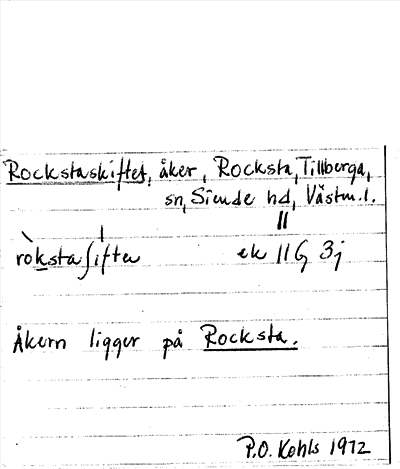 Rockstaskiftet, åker, Rocksta, Tillberga,
sn, Siende hd, Västm. l.
ròkstaʃìften ek 11 G 3j
Åkern ligger på Rocksta.
P.O. Kohls 1972